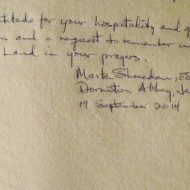 titude for your hospitality and g
n and a request to remember
Land in your prayers.
Mark Sheridan, OS
Dormition Abbey, Je
19 September 2014